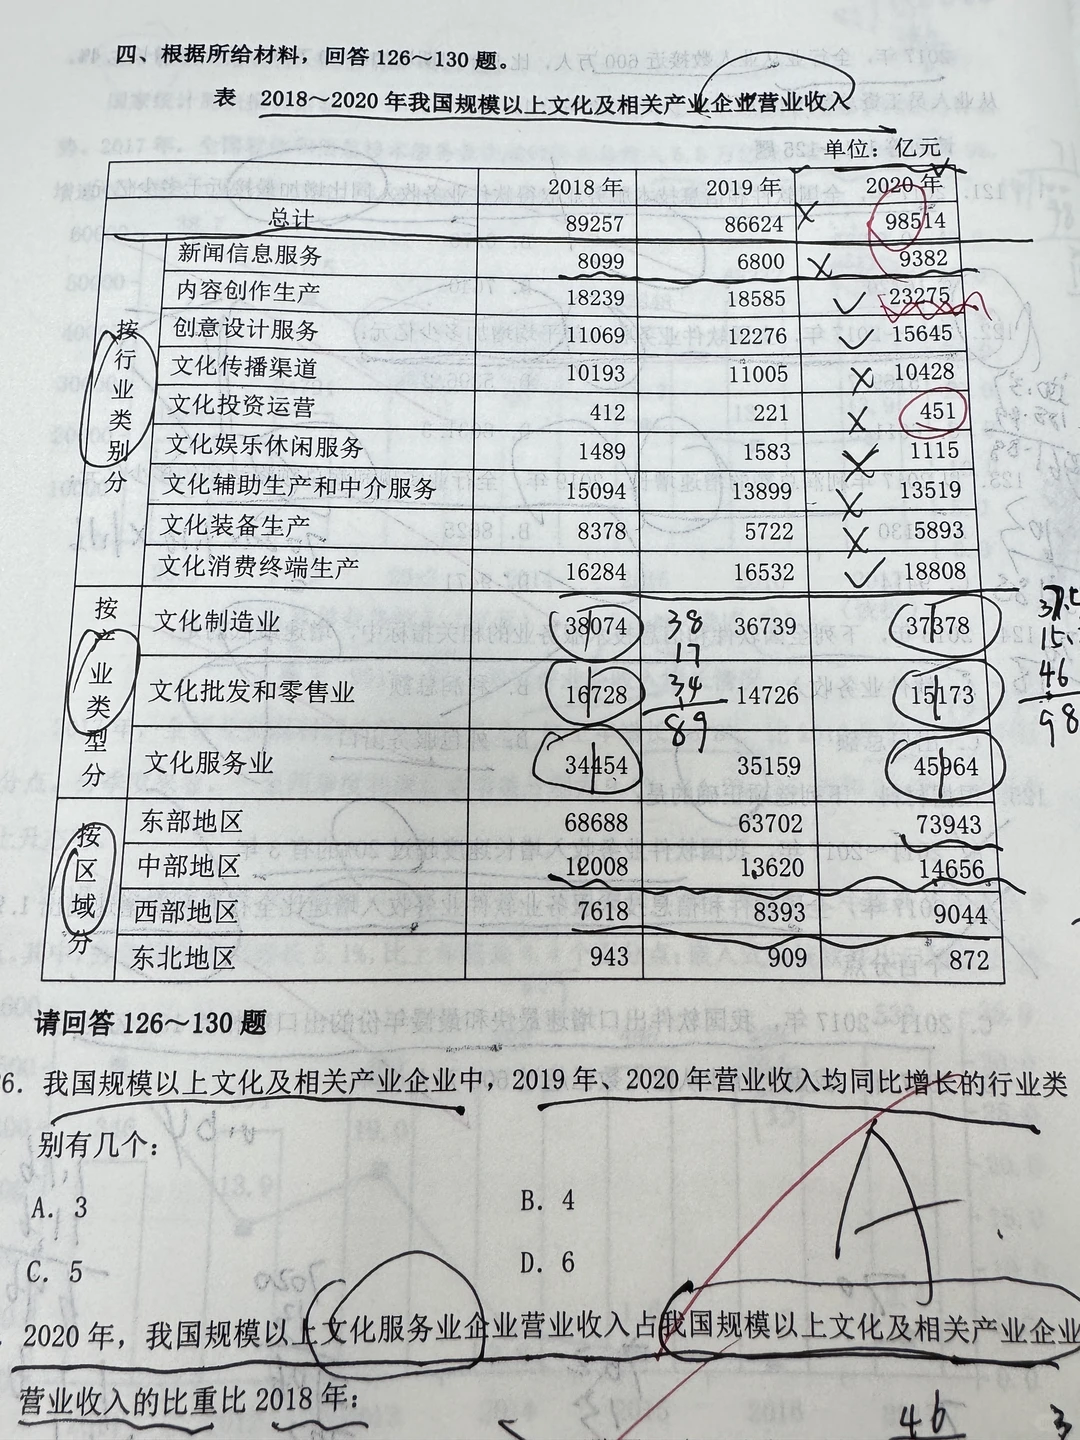 四、根据所给材料，回答126～130题。
表 2018～2020年我国规模以上文化及相关产业企业营业收入
单位：亿元
2018年 2019年 2020年
总计 89257 86624 98514
按行业类别分
新闻信息服务 8099 6800 9382
内容创作生产 18239 18585 23275
创意设计服务 11069 12276 15645
文化传播渠道 10193 11005 10428
文化投资运营 412 221 451
文化娱乐休闲服务 1489 1583 1115
文化辅助生产和中介服务 15094 13899 13519
文化装备生产 8378 5722 5893
文化消费终端生产 16284 16532 18808
按产业类型分
文化制造业 38074 36739 37378
文化批发和零售业 16728 14726 15173
文化服务业 34454 35159 45964
38
17
34
89
46
98
按区域分
东部地区 68688 63702 73943
中部地区 12008 13620 14656
西部地区 7618 8393 9044
东北地区 943 909 872
请回答126～130题
6. 我国规模以上文化及相关产业企业中，2019年、2020年营业收入均同比增长的行业类
别有几个：
A. 3 B. 4
C. 5 D. 6
A
. 2020年，我国规模以上文化服务业企业营业收入占我国规模以上文化及相关产业企业
营业收入的比重比2018年：
46 3